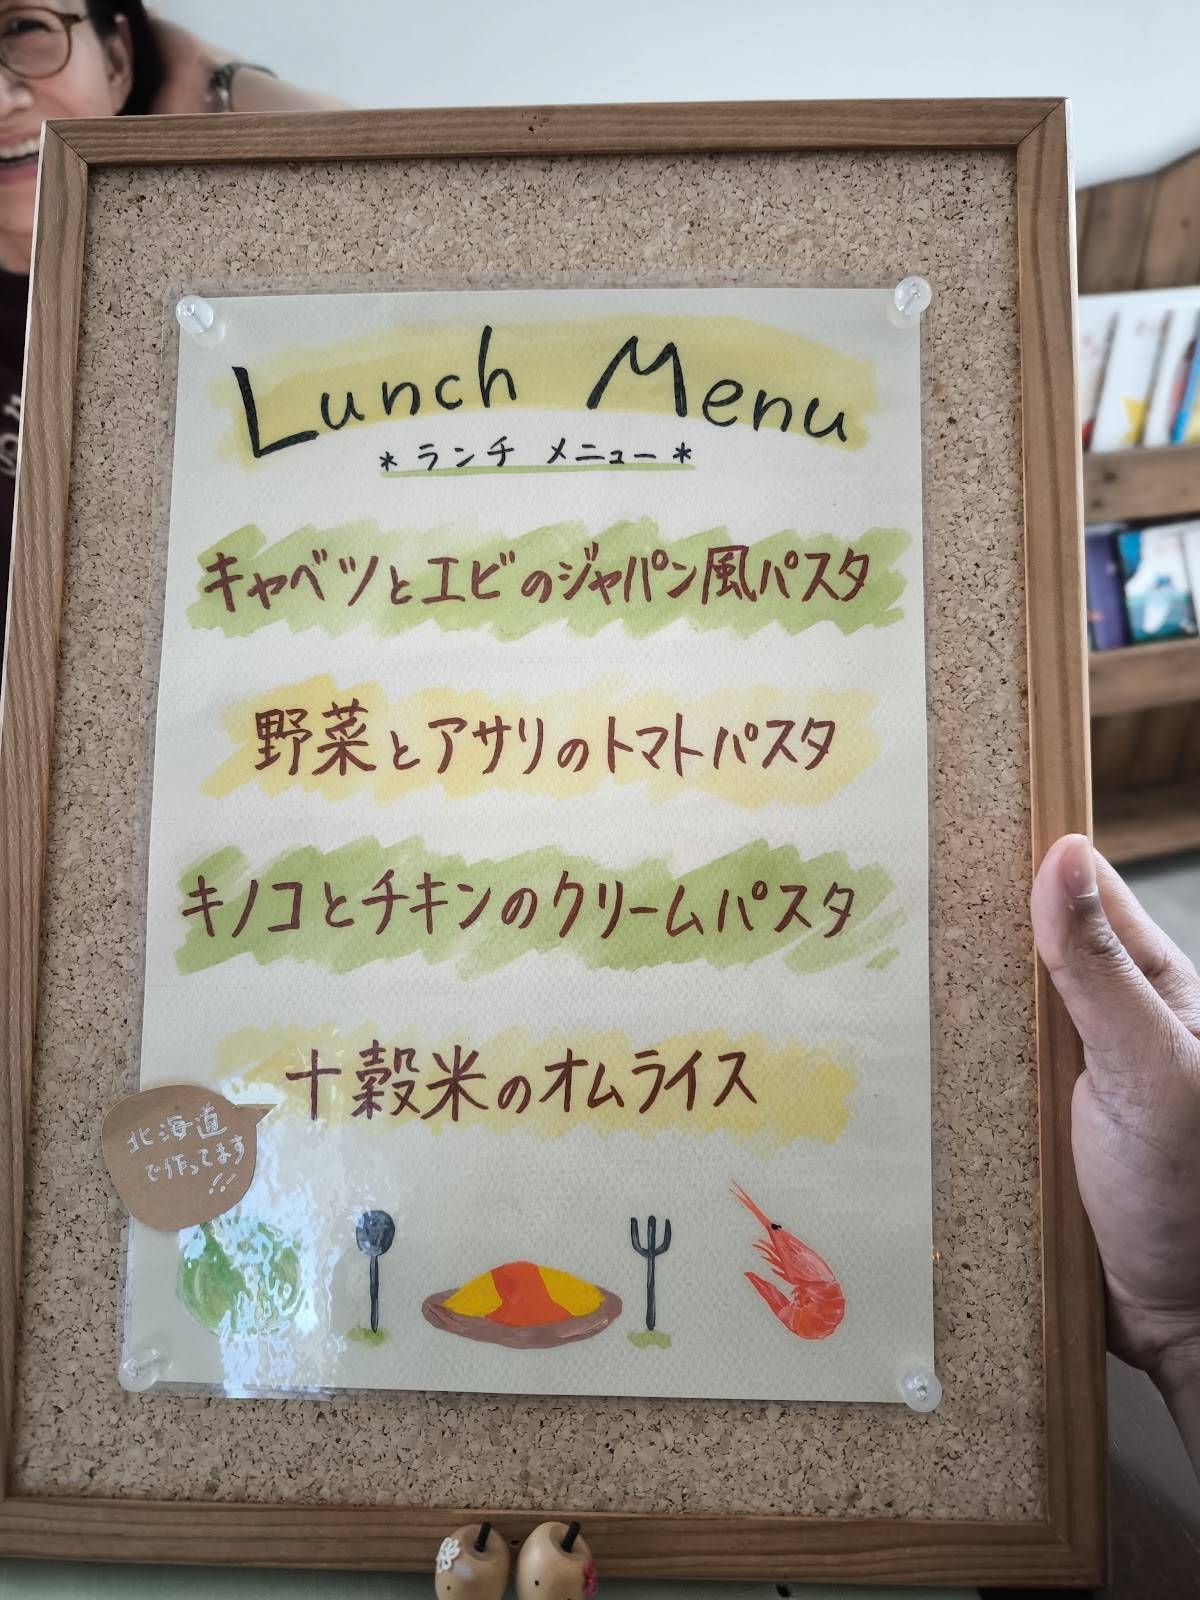 Lunch Menu
* ランチ メニュー *
キャベツとエビのジャパン風パスタ
野菜とアサリのトマトパスタ
キノコとチキンのクリームパスタ
十穀米のオムライス
北海道
で作ってます
!!